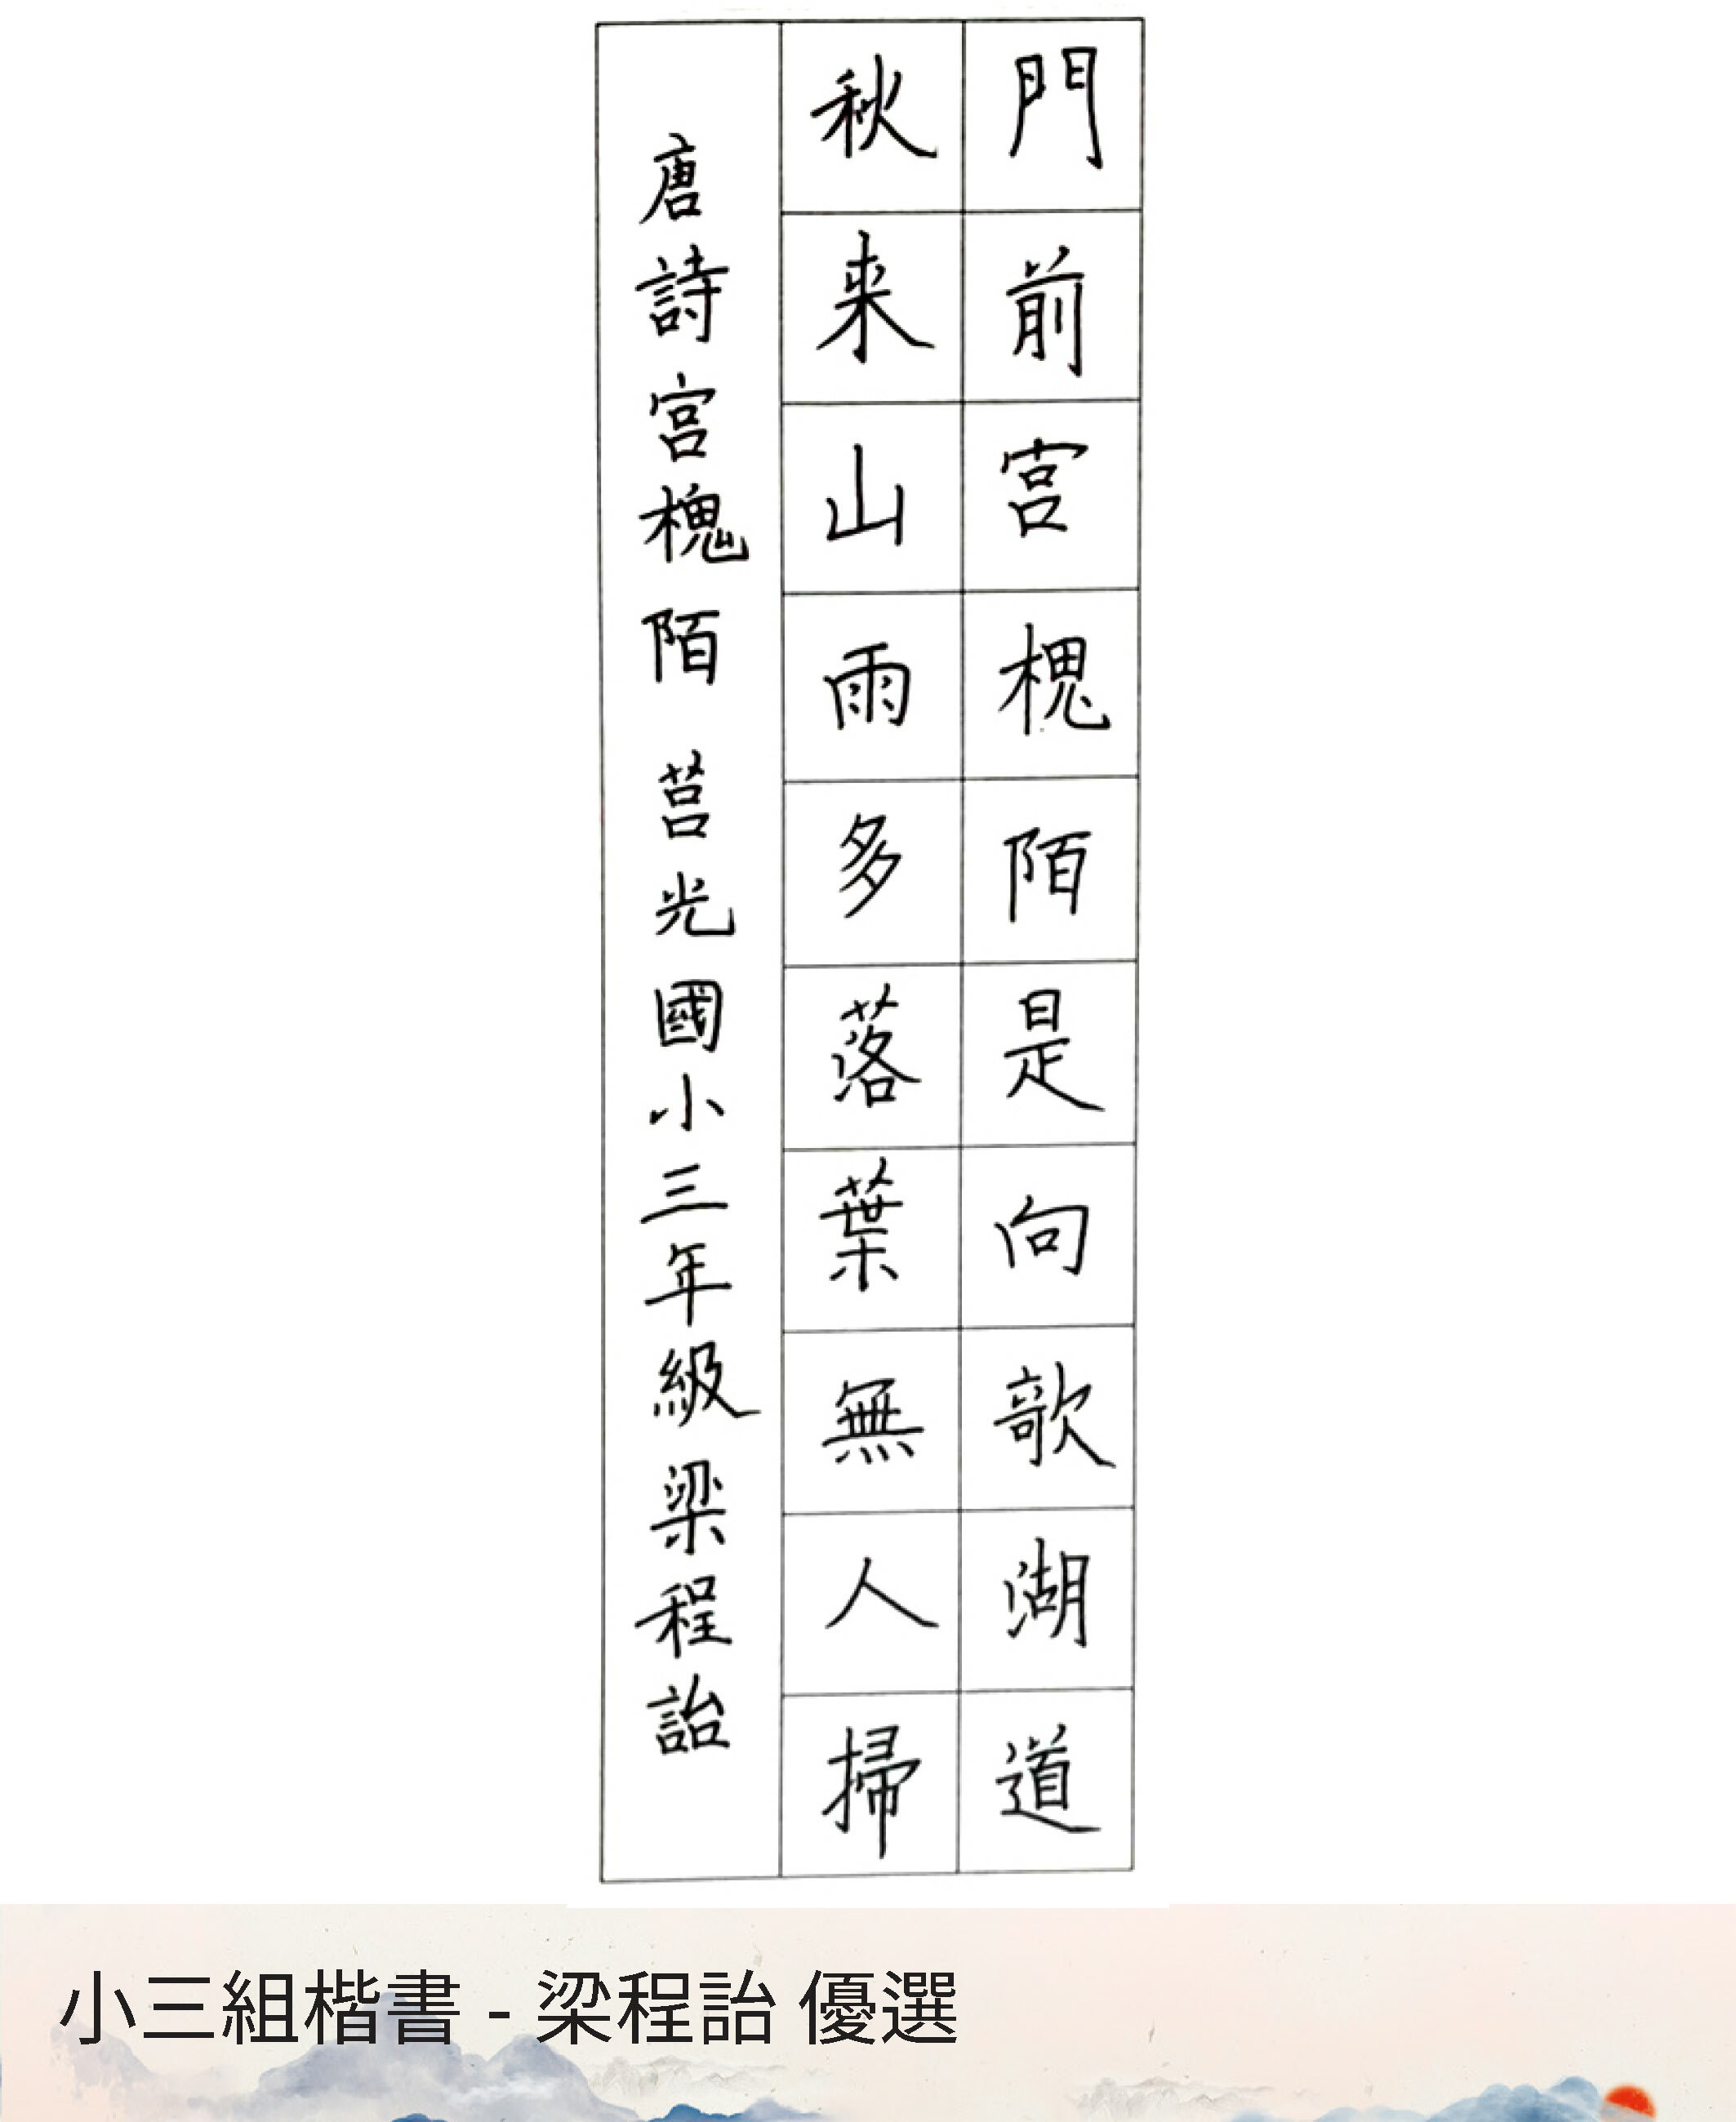 門前宮槐陌是向歌湖道
秋来山雨多落葉無人掃
唐詩宮槐陌 莒光國小三年級梁程詒
小三組楷書 - 梁程詒 優選